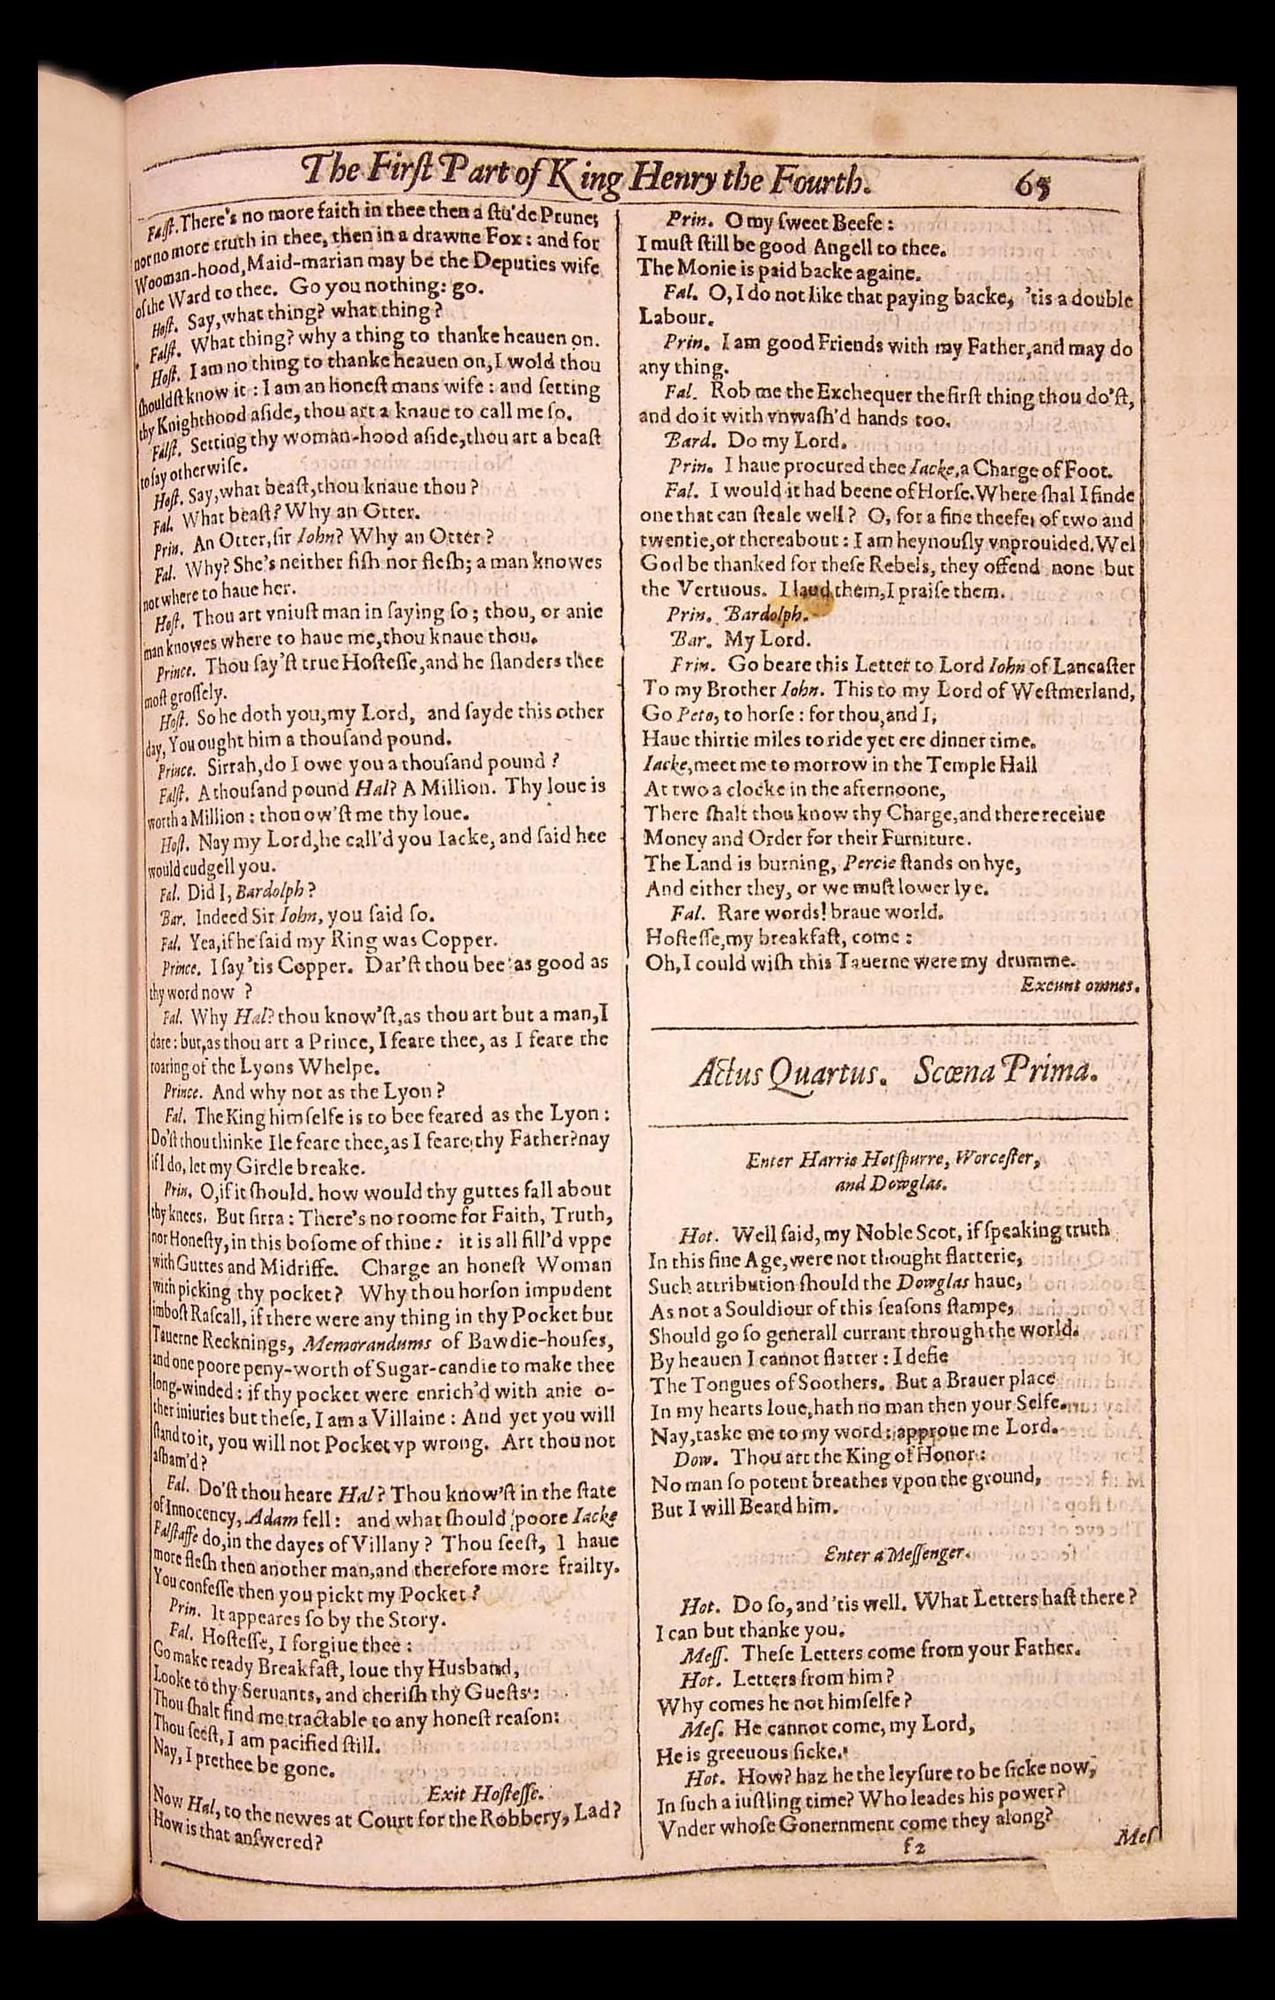 The Firſt Part of King Henry the Fourth. 65
Falſt. There's no more faith in thee then a ſtu'de Prune;
nor no more truth in thee, then in a drawne Fox: and for
Wooman-hood, Maid-marian may be the Deputies wife
of the Ward to thee. Go you nothing: go.
Hoſt. Say, what thing? what thing?
Falſt. What thing? why a thing to thanke heauen on.
Hoſt. I am no thing to thanke heauen on, I wold thou
ſhouldſt know it: I am an honeſt mans wife: and ſetting
thy Knighthood aſide, thou art a knaue to call me ſo.
Falſt. Setting thy woman-hood aſide, thou art a beaſt
to ſay otherwiſe.
Hoſt. Say, what beaſt, thou knaue thou?
Fal. What beaſt? Why an Otter.
Prin. An Otter, ſir Iohn? Why an Otter?
Fal. Why? She's neither fiſh nor fleſh; a man knowes
not where to haue her.
Hoſt. Thou art vniuſt man in ſaying ſo; thou, or anie
man knowes where to haue me, thou knaue thou.
Prince. Thou ſay'ſt true Hoſteſſe, and he ſlanders thee
moſt groſſely.
Hoſt. So he doth you, my Lord, and ſayde this other
day, You ought him a thouſand pound.
Prince. Sirrah, do I owe you a thouſand pound?
Falſt. A thouſand pound Hal? A Million. Thy loue is
worth a Million: thou ow'ſt me thy loue.
Hoſt. Nay my Lord, he call'd you Iacke, and ſaid hee
would cudgell you.
Fal. Did I, Bardolph?
Bar. Indeed Sir Iohn, you ſaid ſo.
Fal. Yea, if he ſaid my Ring was Copper.
Prince. I ſay 'tis Copper. Dar'ſt thou bee as good as
thy word now ?
Fal. Why Hal? thou know'ſt, as thou art but a man, I
dare: but, as thou art a Prince, I feare thee, as I feare the
roaring of the Lyons Whelpe.
Prince. And why not as the Lyon?
Fal. The King himſelfe is to bee feared as the Lyon:
Do'ſt thou thinke Ile feare thee, as I feare thy Father? nay
if I do, let my Girdle breake.
Prin. O, if it ſhould. how would thy guttes fall about
thy knees. But ſirra: There's no roome for Faith, Truth,
nor Honeſty, in this boſome of thine: it is all fill'd vppe
with Guttes and Midriffe. Charge an honeſt Woman
with picking thy pocket? Why thou horſon impudent
imboſt Raſcall, if there were any thing in thy Pocket but
Tauerne Recknings, Memorandums of Bawdie-houſes,
and one poore peny-worth of Sugar-candie to make thee
long-winded: if thy pocket were enrich'd with anie o-
ther iniuries but theſe, I am a Villaine: And yet you will
ſtand to it, you will not Pocket vp wrong. Art thou not
aſham'd?
Fal. Do'ſt thou heare Hal? Thou know'ſt in the ſtate
of Innocency, Adam fell: and what ſhould poore Iacke
Falſtaffe do, in the dayes of Villany? Thou ſeeſt, I haue
more fleſh then another man, and therefore more frailty.
You confeſſe then you pickt my Pocket?
Prin. It appeares ſo by the Story.
Fal. Hoſteſſe, I forgiue thee:
Go make ready Breakfaſt, loue thy Husband,
Looke to thy Seruants, and cheriſh thy Gueſts:
Thou ſhalt find me tractable to any honeſt reaſon:
Thou ſeeſt, I am pacified ſtill.
Nay, I prethee be gone.
Exit Hoſteſſe.
Now Hal, to the newes at Court for the Robbery, Lad?
How is that anſwered?
Prin. O my ſweet Beefe:
I muſt ſtill be good Angell to thee.
The Monie is paid backe againe.
Fal. O, I do not like that paying backe, 'tis a double
Labour.
Prin. I am good Friends with my Father, and may do
any thing.
Fal. Rob me the Exchequer the firſt thing thou do'ſt,
and do it with vnwaſh'd hands too.
Bard. Do my Lord.
Prin. I haue procured thee Iacke, a Charge of Foot.
Fal. I would it had beene of Horſe. Where ſhal I finde
one that can ſteale well? O, for a fine theefe, of two and
twentie, or thereabout: I am heynouſly vnprouided. Wel
God be thanked for theſe Rebels, they offend none but
the Vertuous. I laud them, I praiſe them.
Prin. Bardolph.
Bar. My Lord.
Prin. Go beare this Letter to Lord Iohn of Lancaſter
To my Brother Iohn. This to my Lord of Weſtmerland,
Go Peto, to horſe: for thou, and I,
Haue thirtie miles to ride yet ere dinner time.
Iacke, meet me to morrow in the Temple Hall
At two a clocke in the afternoone,
There ſhalt thou know thy Charge, and there receiue
Money and Order for their Furniture.
The Land is burning, Percie ſtands on hye,
And either they, or we muſt lower lye.
Fal. Rare words! braue world.
Hoſteſſe, my breakfaſt, come:
Oh, I could wiſh this Tauerne were my drumme.
Exeunt omnes.
Actus Quartus. Scœna Prima.
Enter Harrie Hotſpurre, Worceſter,
and Dowglas.
Hot. Well ſaid, my Noble Scot, if ſpeaking truth
In this fine Age, were not thought flatterie,
Such attribution ſhould the Dowglas haue,
As not a Souldiour of this ſeaſons ſtampe,
Should go ſo generall currant through the world.
By heauen I cannot flatter: I defie
The Tongues of Soothers. But a Brauer place
In my hearts loue, hath no man then your Selfe.
Nay, taske me to my word: approue me Lord.
Dow. Thou art the King of Honor:
No man ſo potent breathes vpon the ground,
But I will Beard him.
Enter a Meſſenger.
Hot. Do ſo, and 'tis well. What Letters haſt there?
I can but thanke you.
Meſſ. Theſe Letters come from your Father.
Hot. Letters from him?
Why comes he not himſelfe?
Meſ. He cannot come, my Lord,
He is greeuous ſicke.
Hot. How? haz he the leyſure to be ſicke now,
In ſuch a iuſtling time? Who leades his power?
Vnder whoſe Gouernment come they along?
f2
Meſ